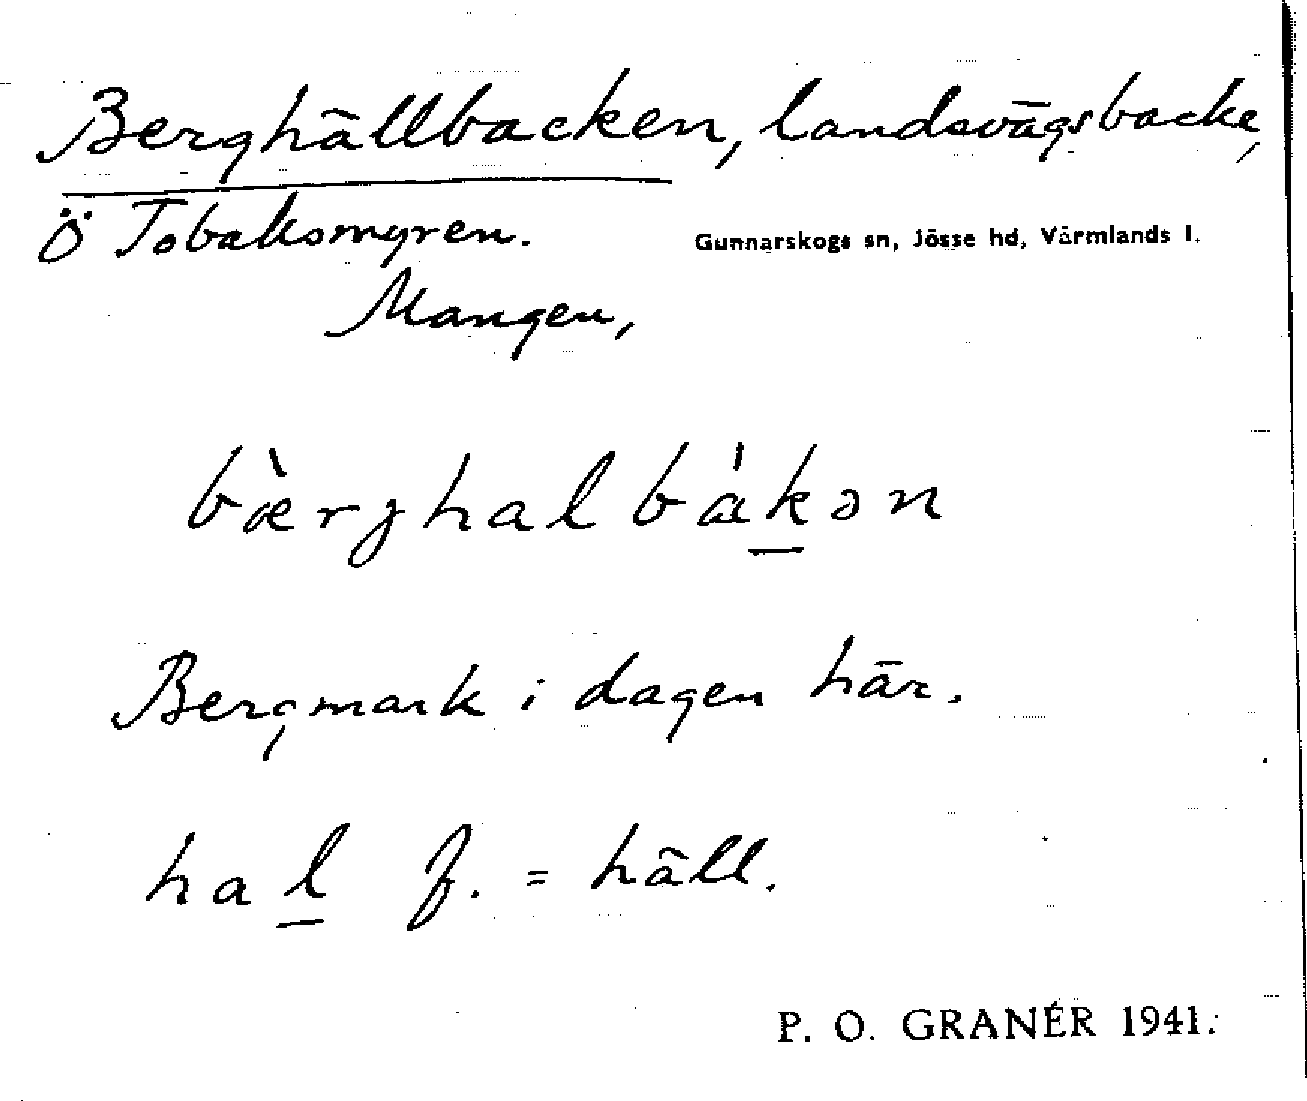 Berghällbacken, landsvägsbacke,
Ö Tobaksmyren.
Gunnarskogs sn, Jösse hd, Värmlands l.
Mangen,
bæ̀rghalbákən
Bergmark i dagen här.
hal f. = häll.
P. O. GRANÉR 1941.